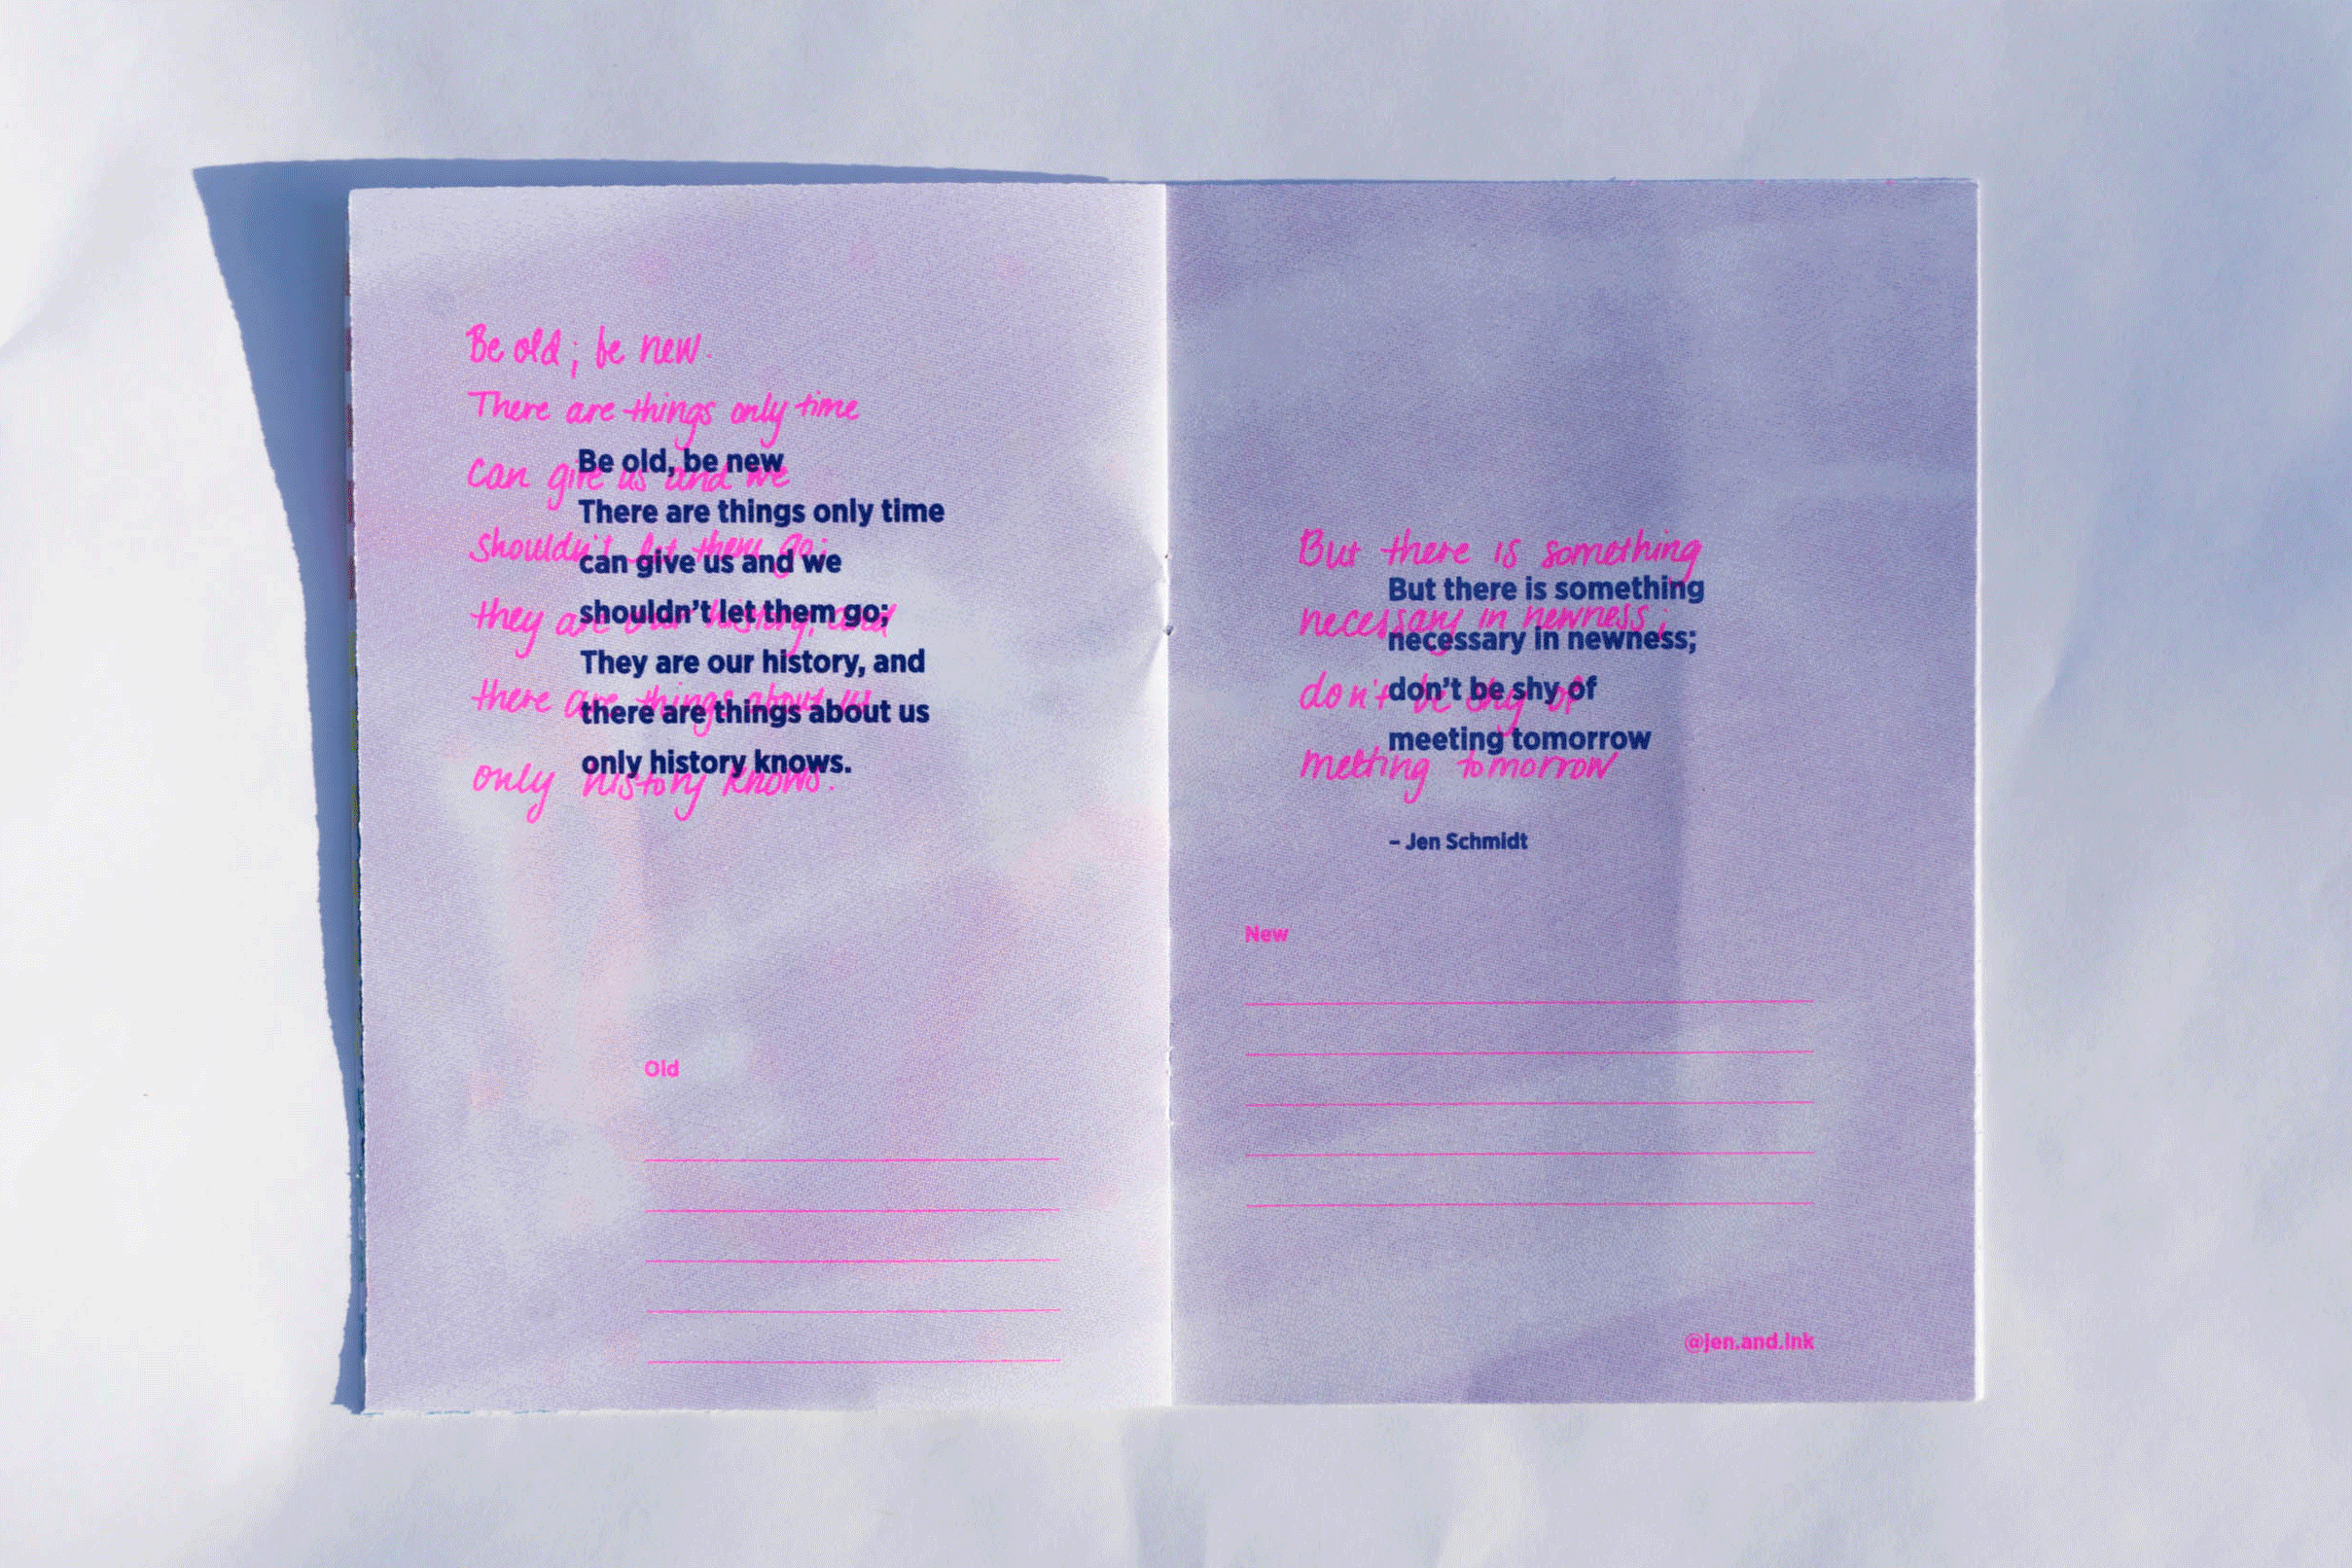 Be old; be new.
There are things only time
can give us and we
shouldn't let them go;
they are our history, and
there are things about us
only history knows.
Be old, be new
There are things only time
can give us and we
shouldn't let them go;
They are our history, and
there are things about us
only history knows.
Old
But there is something
necessary in newness;
don't be shy of
meeting tomorrow
But there is something
necessary in newness;
don't be shy of
meeting tomorrow
– Jen Schmidt
New
@jen.and.ink